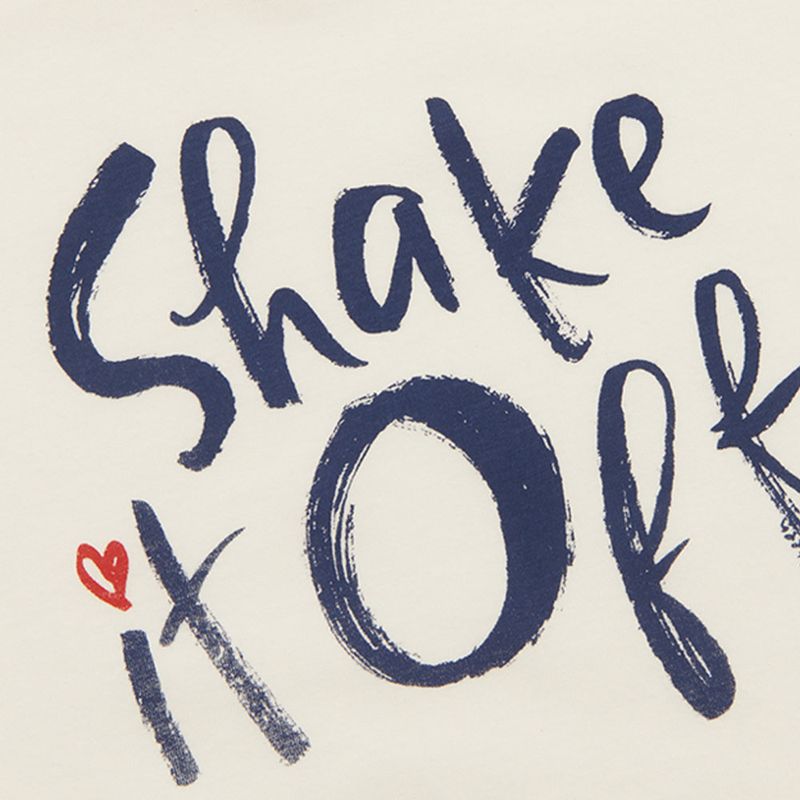 Shake
it Off